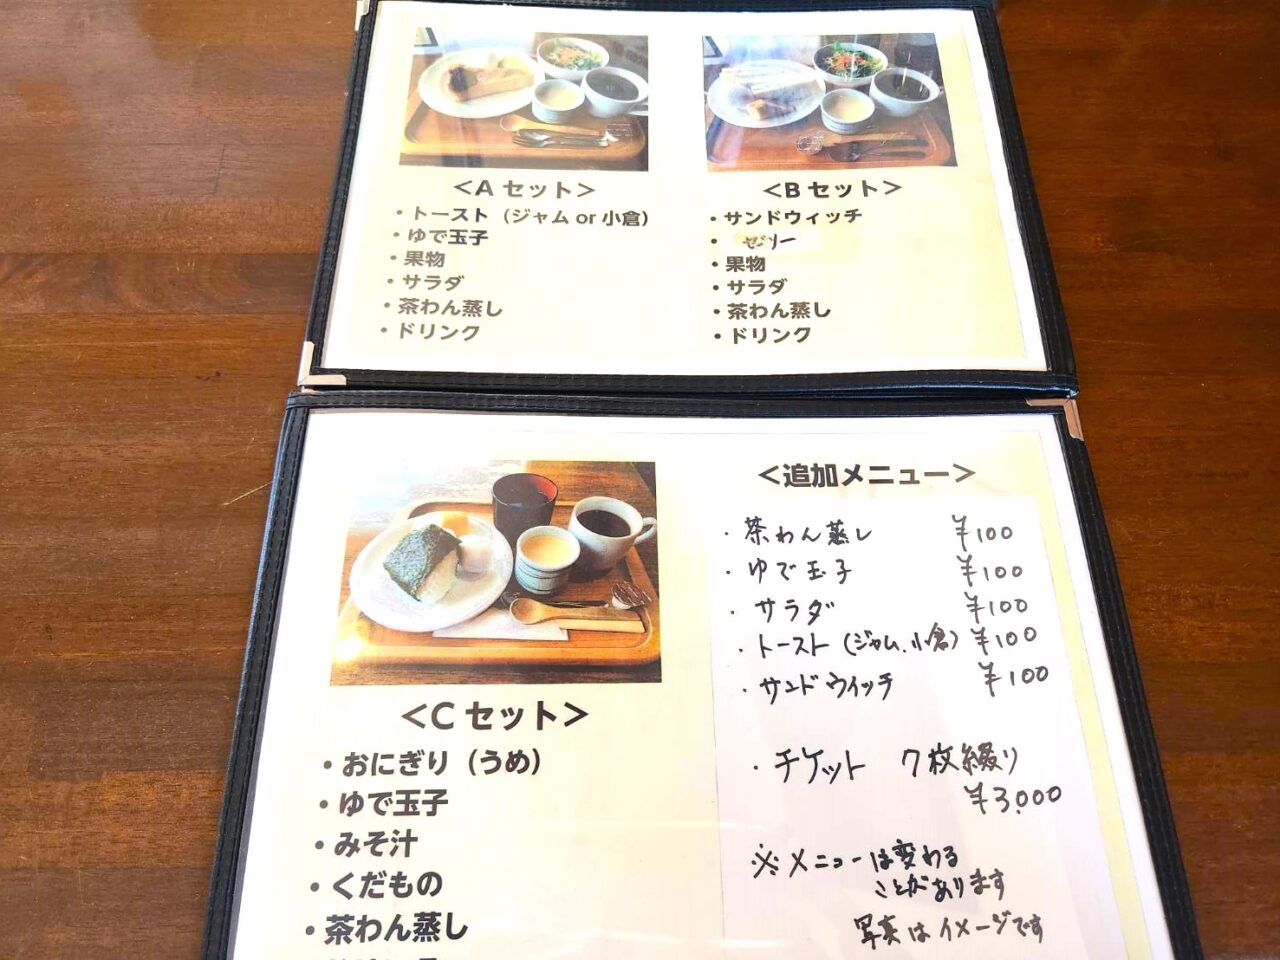 ＜A セット＞
・トースト（ジャム or 小倉）
・ゆで玉子
・果物
・サラダ
・茶わん蒸し
・ドリンク
＜B セット＞
・サンドウィッチ
・ゼリー
・果物
・サラダ
・茶わん蒸し
・ドリンク
＜C セット＞
・おにぎり（うめ）
・ゆで玉子
・みそ汁
・くだもの
・茶わん蒸し
＜追加メニュー＞
・茶わん蒸し ¥100
・ゆで玉子 ¥100
・サラダ ¥100
・トースト（ジャム、小倉） ¥100
・サンドウィッチ ¥100
・チケット 7枚綴り
¥3,000
※メニューは変わる
ことがあります
写真はイメージです